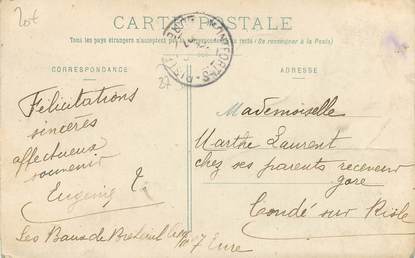 CARTE POSTALE
Tous les pays étrangers n'acceptent pas correspondance (Se renseigner à la Poste)
CORRESPONDANCE
ADRESSE
Félicitations
sincères
affectueux
souvenir
Mademoiselle
Marthe Laurent
chez ses parents receveur
gare
Condé sur Risle
Eure
Les Baux de Breteuil
27